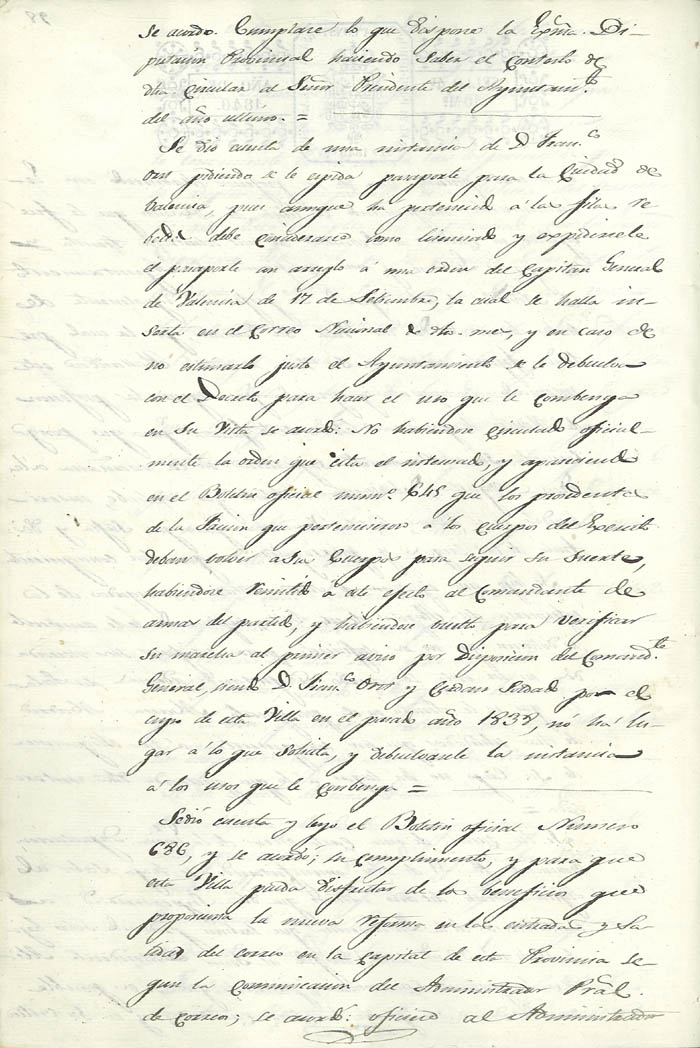 se acordo. Cumplase lo que dispone la Exma. Di-
putacion Provincial haciendo saber el contesto de
dha circular al Señor Presidente del Ayuntamto.
del año ultimo. =
Se dio cuenta de una instancia de D. Franco.
Orts pidiendo se le espida pasaporte para la Ciudad de
Valencia, pues aunque ha pertenecido á las filas re-
beldes debe considerarse como licenciado y expedirsele
el pasaporte con arreglo á una orden del Capitan General
de Valencia de 17 de Setiembre, la cual se halla in-
serta en el Correo Nacional de dho. mes, y en caso de
no estimarlo justo el Ayuntamiento se le debuelva
con el Decreto para hacer el uso que le combenga
en su Vista se acordó: No habiendose circulado oficial-
mente la orden que cita el interesado, y apareciendo
en el Boletin oficial numo. 645 que los procedentes
de la Faccion que pertenecieron a los cuerpos del Exercito
deban volver a sus Cuerpos para seguir su suerte,
habiendose remitido a este efecto al Comandante de
armas del partido, y habiendose vuelto para verificar
su marcha al primer aviso por disposicion del Comandte.
General, siendo D. Franco. Orts y Soldado por el
cupo de esta Villa en el pasado año 1838, nó há lu-
gar á lo que solicita, y debuelvasele la instancia
á los usos que le combenga =
Sedió cuenta y leyo el Boletin oficial Numero
686, y se acordó; su cumplimiento, y para que
esta Villa pueda disfrutar de los beneficios que
proporciona la nueva reforma en las entradas y sa-
lidas del correo en la capital de esta Provincia se-
gun la comunicacion del Administrador Pral.
de Correos; se acordó: oficiese al Administrador